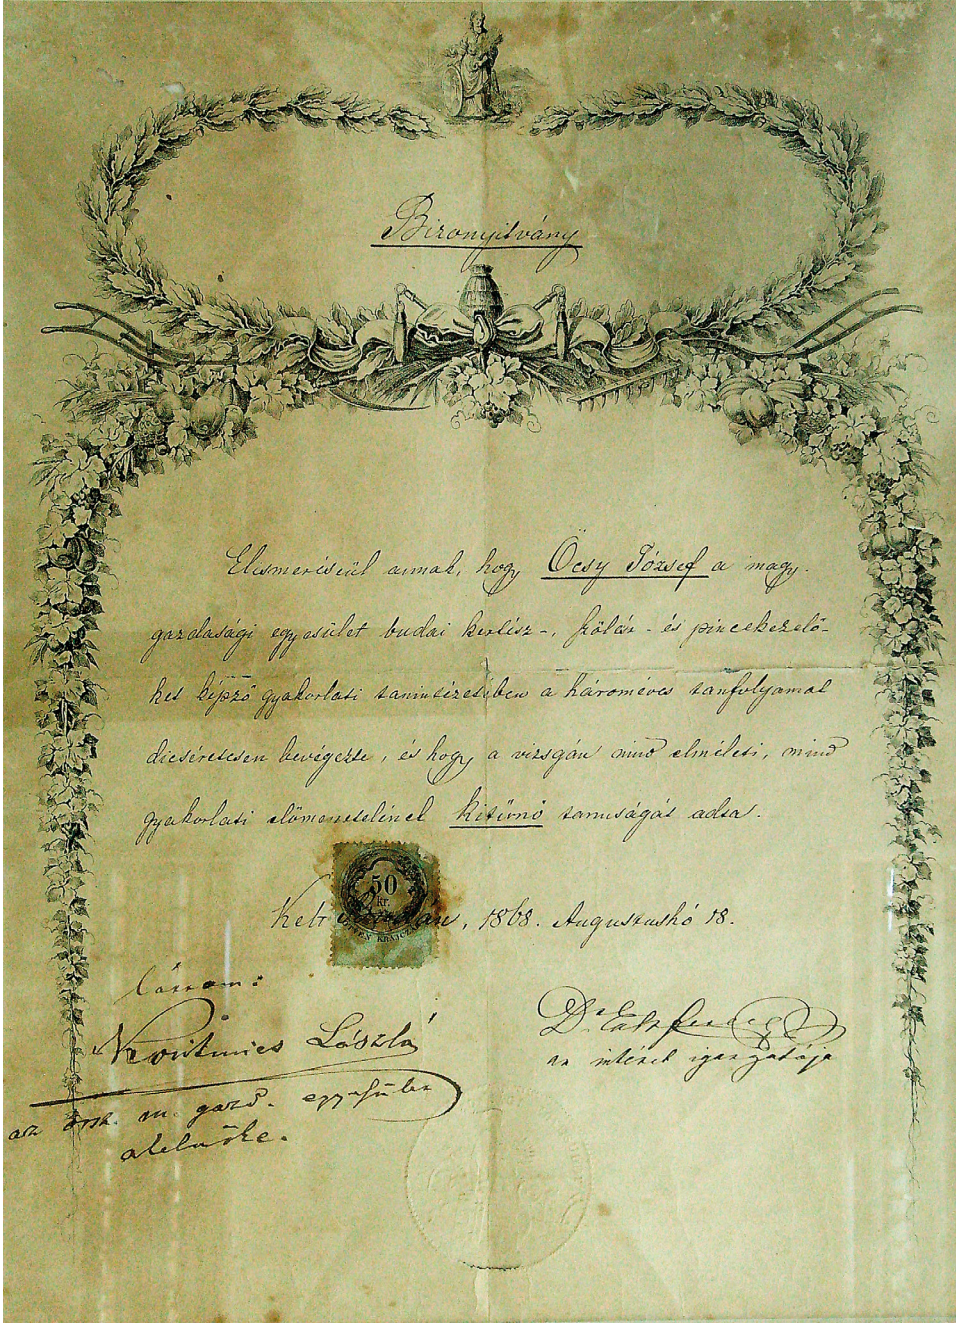 Bizonyitvány
Elismeréséül annak, hogy Öcsy József a magy.
gazdasági egyesület budai kertész-, szőlász- és pinczekezelő-
ket képző gyakorlati tanintézetében a hároméves tanfolyamot
dicséretesen bevégezte, és hogy a vizsgán mind elméleti, mind
gyakorlati előmenetelének kitünő tanuságát adta.
50
kr.
Kelt Budán, 1868. Augusztushó 18.
Láttam:
Korizmics László
az orsz. m. gazd. egyesület
alelnöke.
Dr. Entz Ferencz
az intézet igazgatója